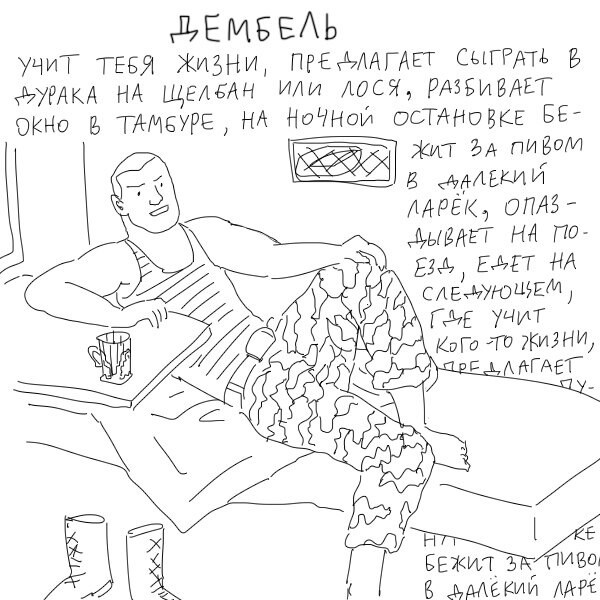 ДЕМБЕЛЬ
УЧИТ ТЕБЯ ЖИЗНИ, ПРЕДЛАГАЕТ СЫГРАТЬ В
ДУРАКА НА ЩЕЛБАН ИЛИ ЛОСЯ, РАЗБИВАЕТ
ОКНО В ТАМБУРЕ, НА НОЧНОЙ ОСТАНОВКЕ БЕ-
ЖИТ ЗА ПИВОМ
В ДАЛЕКИЙ
ЛАРЁК, ОПАЗ-
ДЫВАЕТ НА ПО-
ЕЗД, ЕДЕТ НА
СЛЕДУЮЩЕМ,
ГДЕ УЧИТ
КОГО-ТО ЖИЗНИ,
ПРЕДЛАГАЕТ
БЕЖИТ ЗА ПИВОМ
В ДАЛЁКИЙ ЛАРЁ